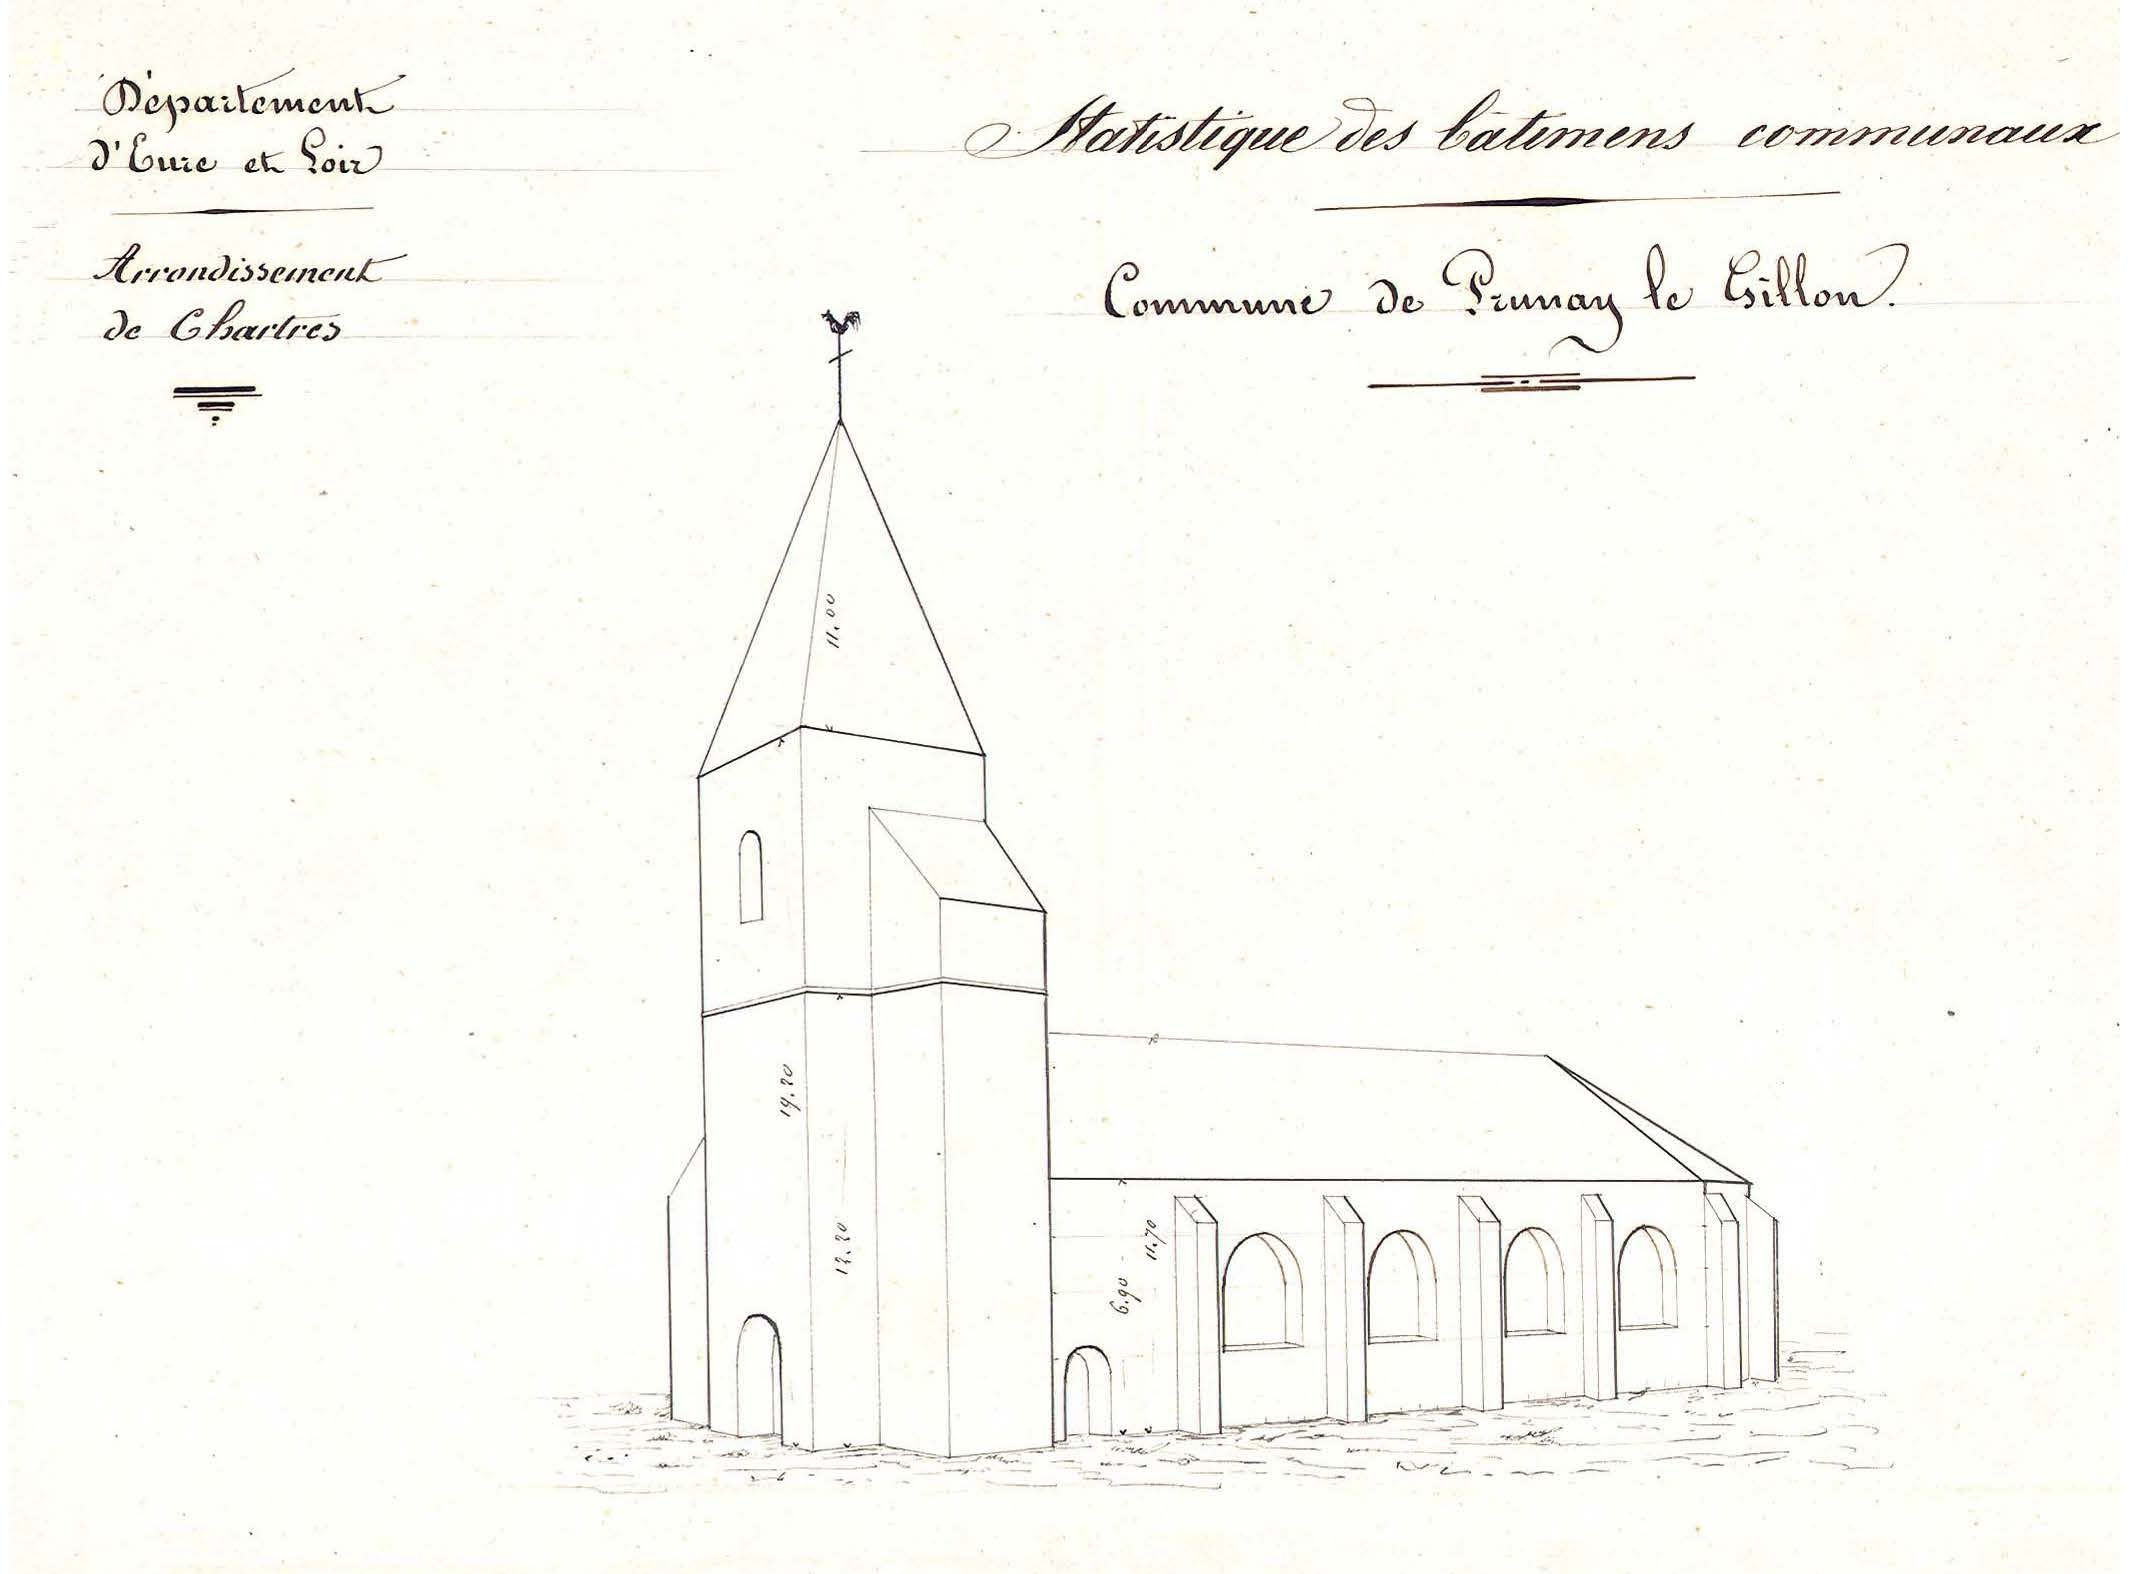 Département
d'Eure et Loir
Arrondissement
de Chartres
Statistique des bâtimens communaux
Commune de Prunay le Gillon.
11.00
19.20
12.20
6.90
11.70